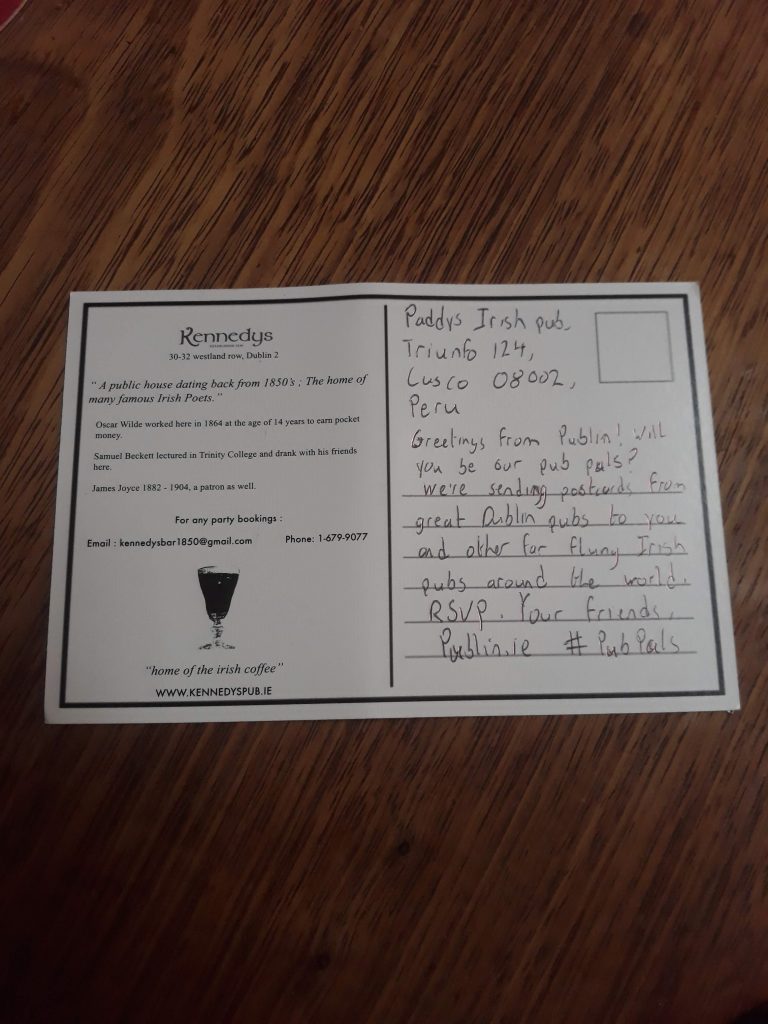 Kennedys
30-32 westland row, Dublin 2
" A public house dating back from 1850's ; The home of
many famous Irish Poets."
Oscar Wilde worked here in 1864 at the age of 14 years to earn pocket
money.
Samuel Beckett lectured in Trinity College and drank with his friends
here.
James Joyce 1882 - 1904, a patron as well.
For any party bookings :
Email : kennedysbar1850@gmail.com Phone: 1-679-9077
"home of the irish coffee"
WWW.KENNEDYSPUB.IE
Paddys Irish pub,
Triunfo 124,
Cusco 08002,
Peru
Greetings from Publin! Will
you be our pub pals?
We're sending postcards from
great Dublin pubs to you
and other far flung Irish
pubs around the world.
RSVP. Your friends,
Publin.ie #PubPals